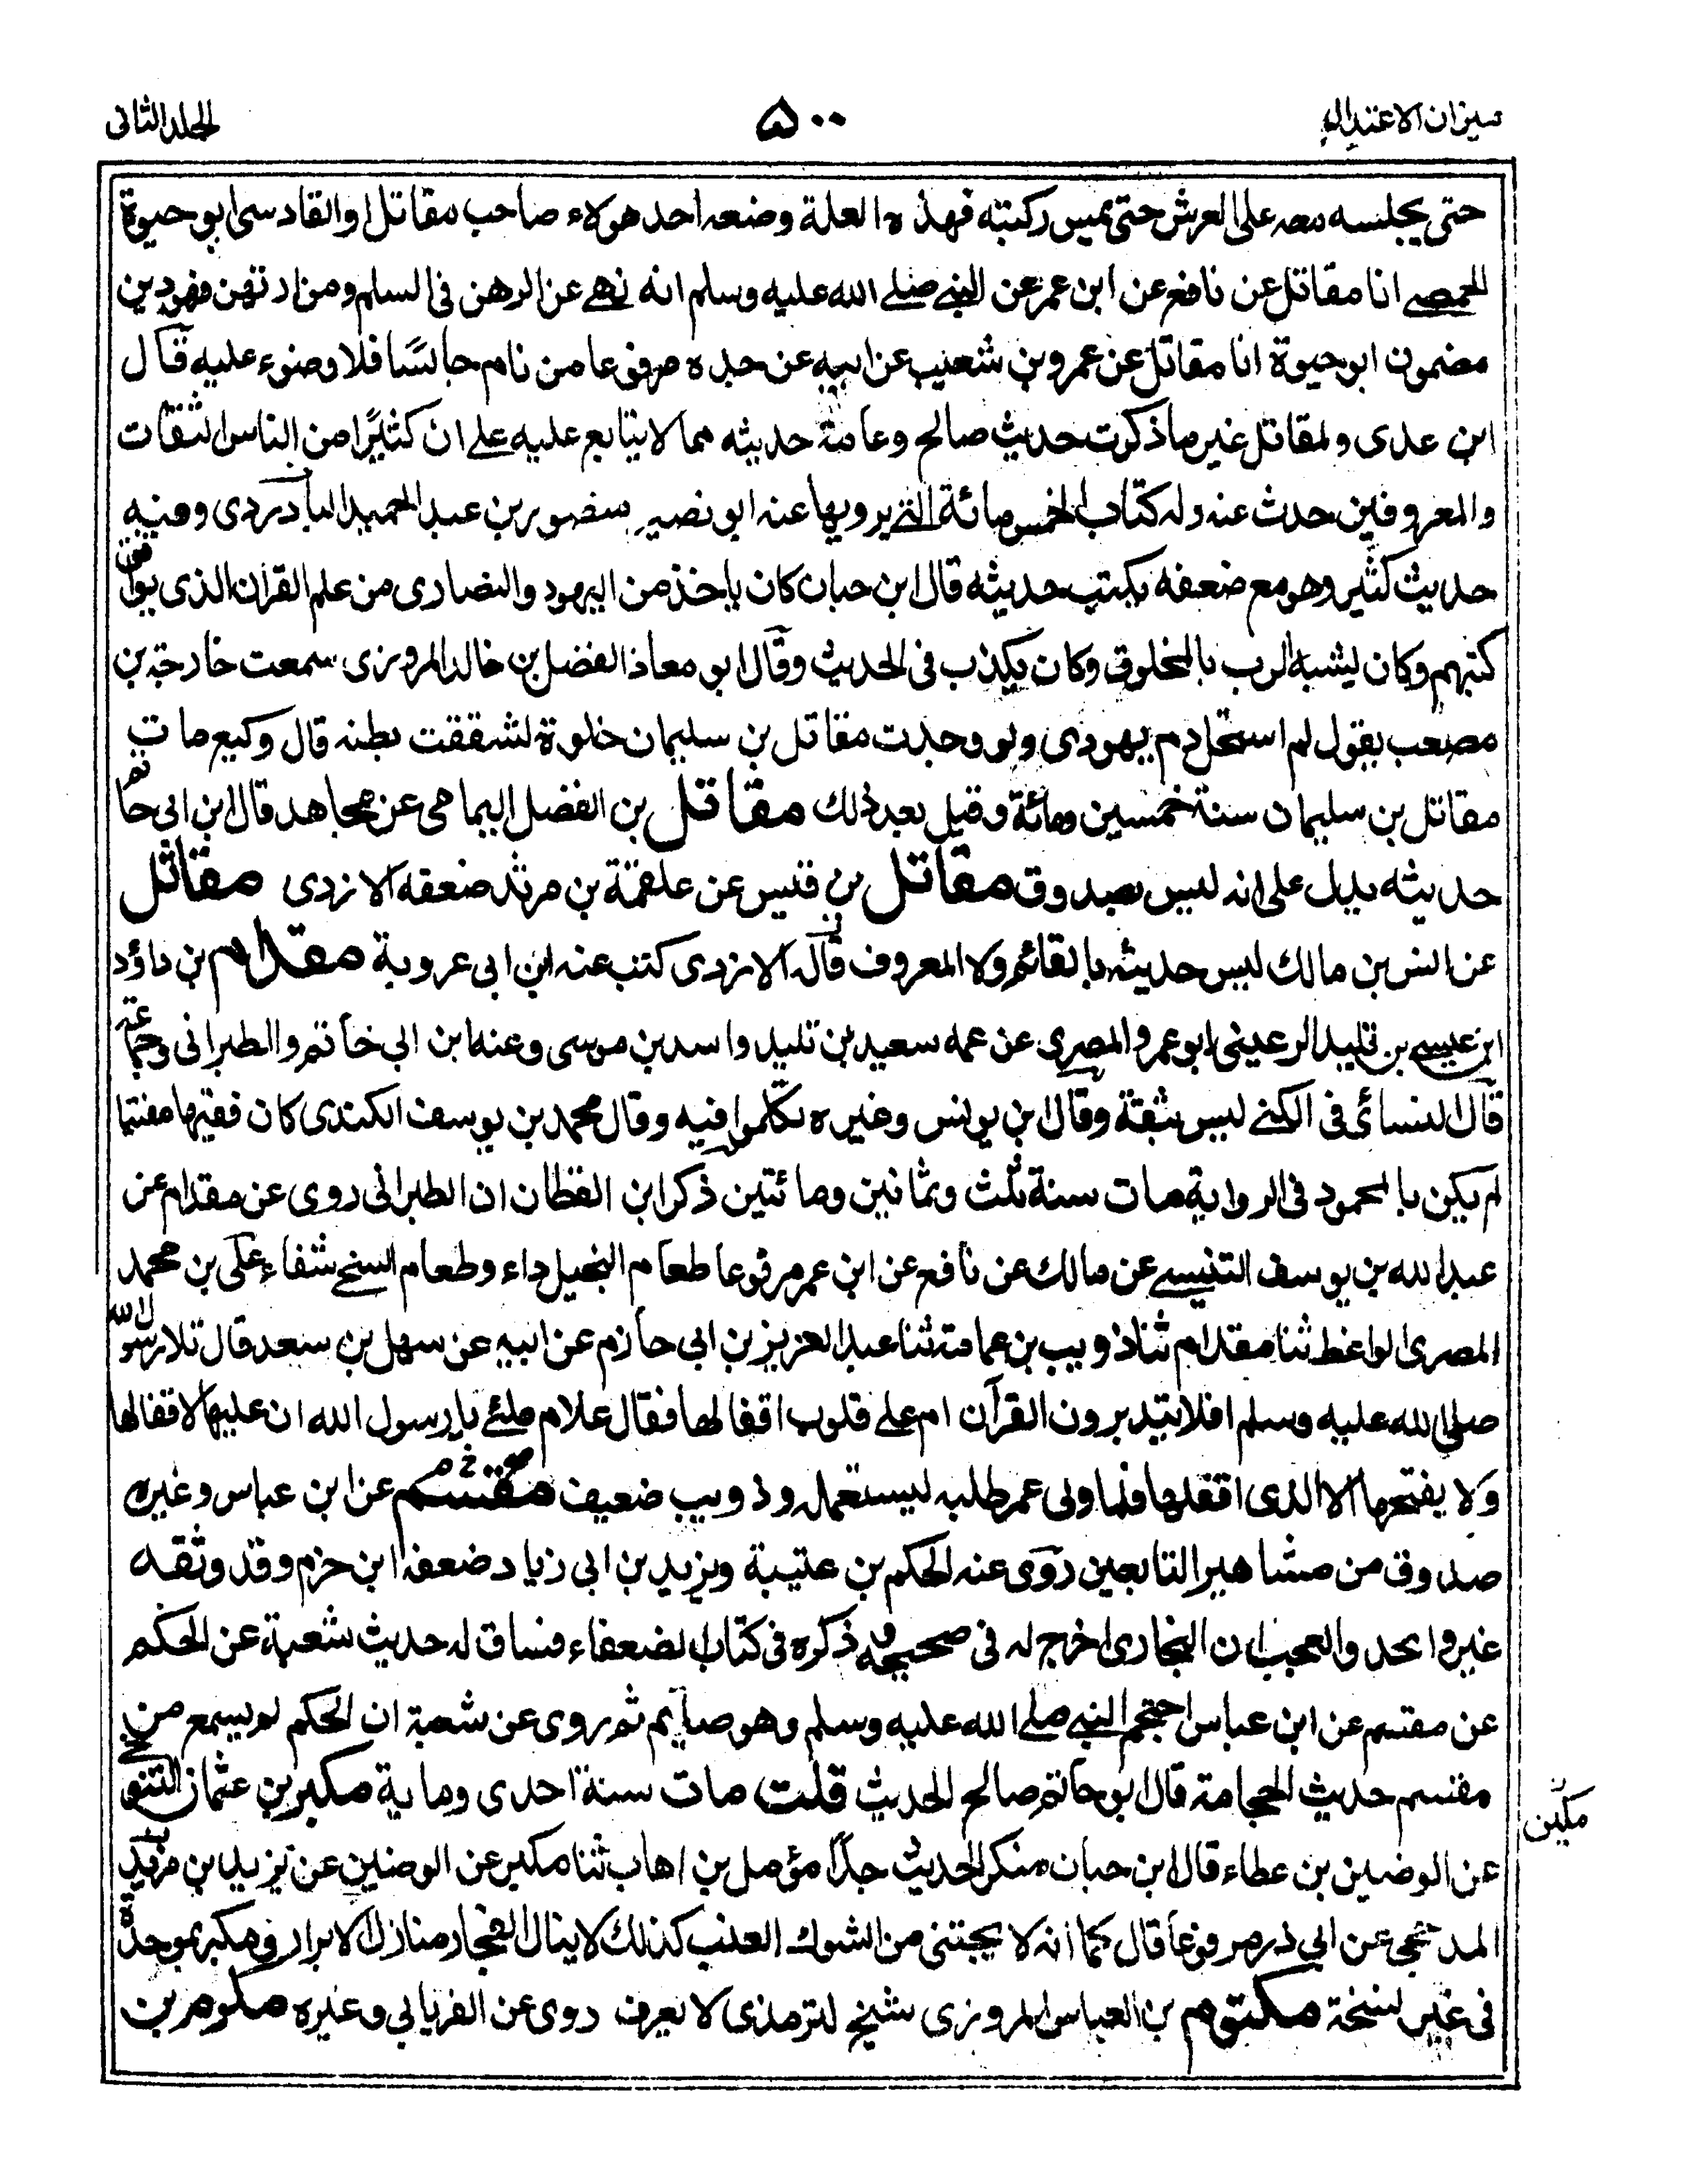 ميزان الاعتدال
۵۰۰
الجلد الثانى
حتى يجلسه معه على العرش حتى يمس ركبته فهذه العلة وضعه احد هولاء صاحب مقاتل او القادسى ابو حيوة
الحمصے انا مقاتل عن نافع عن ابن عمر عن النبے صلے الله عليه وسلم انه نهے عن الرهن فى السلم ومن ارتهن فهو دين
مضمون ابو حيوة انا مقاتل عن عمرو بن شعيب عن ابيه عن جده مرفوعا من نام جالسًا فلا وضوء عليه قال
ابن عدى ولمقاتل غير ما ذكرت حديث صالح وعامة حديثه مما لا يتابع عليه علے ان كثيرًا من الناس الثقات
والمعروفين حدث عنه وله كتاب الخمس مائة التے يرويها عنه ابو نصير منصور بن عبد الحميد الباردى وفيه
حديث كثير وهو مع ضعفه يكتب حديثه قال ابن حبان كان ياخذ من اليهود والنصارى من علم القران الذى يوافق
كتبهم وكان يشبه الرب بالمخلوق وكان يكذب فى الحديث وقال ابو معاذ الفضل بن خالد المروزى سمعت خارجة بن
مصعب يقول لم استحل دم يهودى ولو وجدت مقاتل بن سليمان خلوة لشققت بطنه قال وكيع مات
مقاتل بن سليمان سنة خمسين ومائة وقيل بعد ذلك مقاتل بن الفضل اليمامى عن مجاهد قال ابن ابى حاتم
حديثه يدل على انه ليس بصدوق مقاتل بن قيس عن علقمة بن مرثد ضعفه الازدى مقاتل
عن انس بن مالك ليس حديثه بالقائم ولا المعروف قاله الازدى كتب عنه ابن ابى عروبة مقدام بن داؤد
ابن عيسے بن تليد الرعينى ابو عمرو المصرى عن عمه سعيد بن تليد واسد بن موسى وعنه ابن ابى حاتم والطبرانى وجماعة
قال النسائى فى الكنے ليس بثقة وقال ابن يونس وغيره تكلموا فيه وقال محمد بن يوسف الكندى كان فقيها مفتيا
لم يكن بالمحمود فى الرواية مات سنة ثلث وثمانين ومائتين ذكر ابن القطان ان الطبرانى روى عن مقدام عن
عبد الله بن يوسف التنيسے عن مالك عن نافع عن ابن عمر مرفوعا طعام البخيل داء وطعام السخے شفاء على بن محمد
المصرى الواعظ ثنا مقدام ثنا ذويب بن عمامة ثنا عبد العزيز بن ابى حازم عن ابيه عن سهل بن سعد قال تلا رسول الله
صلى الله عليه وسلم افلا يتدبرون القرآن ام علے قلوب اقفالها فقال غلام ملئے يا رسول الله ان عليها لاقفالها
ولا يفتحها الا الذى اقفلها فلما ولى عمر طلبه ليستعمله وذويب ضعيف مقسم عن ابن عباس وغيره
صدوق من مشاهير التابعين روى عنه الحكم بن عتيبة ويزيد بن ابى زياد ضعفه ابن حزم وقد وثقه
غير واحد والعجب ان البخارى اخرج له فى صحيحه وذكره فى كتاب الضعفاء فساق له حديث شعبة عن الحكم
عن مقسم عن ابن عباس احتجم النبے صلے الله عليه وسلم وهو صايم ثم روى عن شعبة ان الحكم لم يسمع من
مقسم حديث الحجامة قال ابو حاتم صالح الحديث قلت مات سنة احدى وماية مكبر بن عثمان التنوخى
مكين
عن الوضين بن عطاء قال ابن حبان منكر الحديث جدًا مؤمل بن اهاب ثنا مكبر عن الوضين عن يزيد بن مزيد
المدحجى عن ابى ذر مرفوعا قال كما انه لا يجتنى من الشوك العنب كذلك لا ينال الفجار منازل الابرار وفى مكبر بموحدة
فى غير نسخة مكتوم بن العباس المروزى شيخ للترمذى لا يعرف روى عن الفريابى وغيره مكرم بن